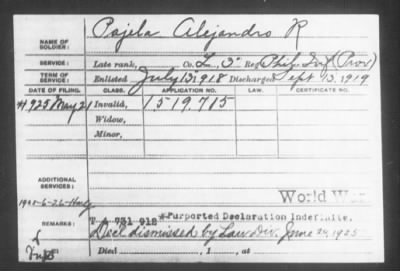 NAME OF SOLDIER: Pojela Alejandro R
SERVICE: Late rank, Co. L, 3" Reg Phil. Inf (Prov)
TERM OF SERVICE: Enlisted July 13, 1918 Discharged Sept 13, 1919
DATE OF FILING. CLASS. APPLICATION NO. LAW. CERTIFICATE NO.
1925 May 21 Invalid, 1519,715
Widow,
Minor,
ADDITIONAL SERVICES:
World War
1925-6-26
*Purported Declaration Indefinite.
REMARKS: Decl dismissed by Law Div. June 24, 1925
Died , 1 , at